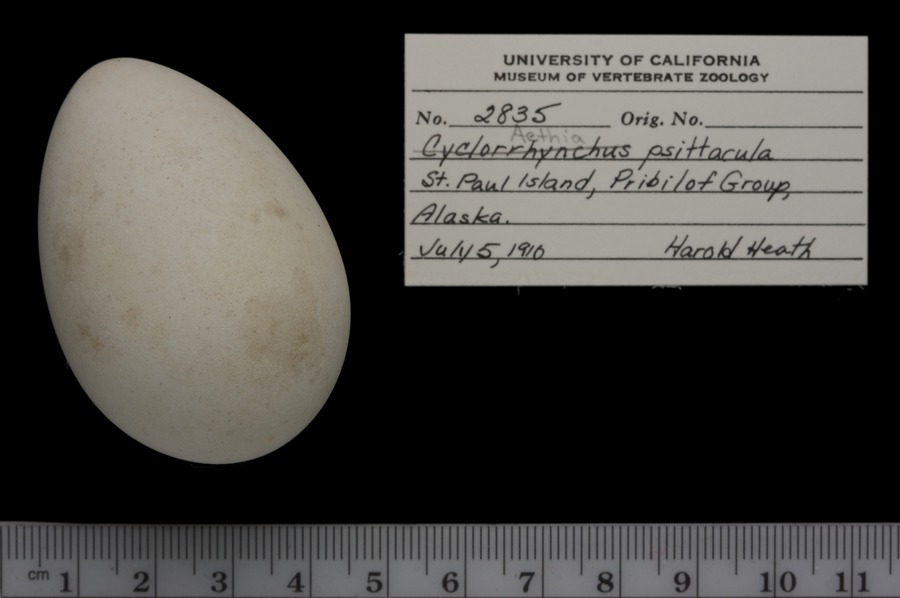 UNIVERSITY OF CALIFORNIA
MUSEUM OF VERTEBRATE ZOOLOGY
No. 2835 Orig. No.
Aethia
Cyclorrhynchus psittacula
St. Paul Island, Pribilof Group,
Alaska.
July 5, 1910 Harold Heath
cm 1 2 3 4 5 6 7 8 9 10 11